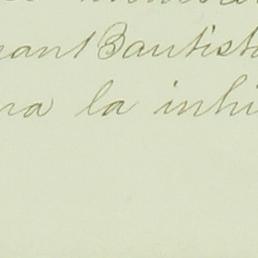 ant Bautist
ra la inhi